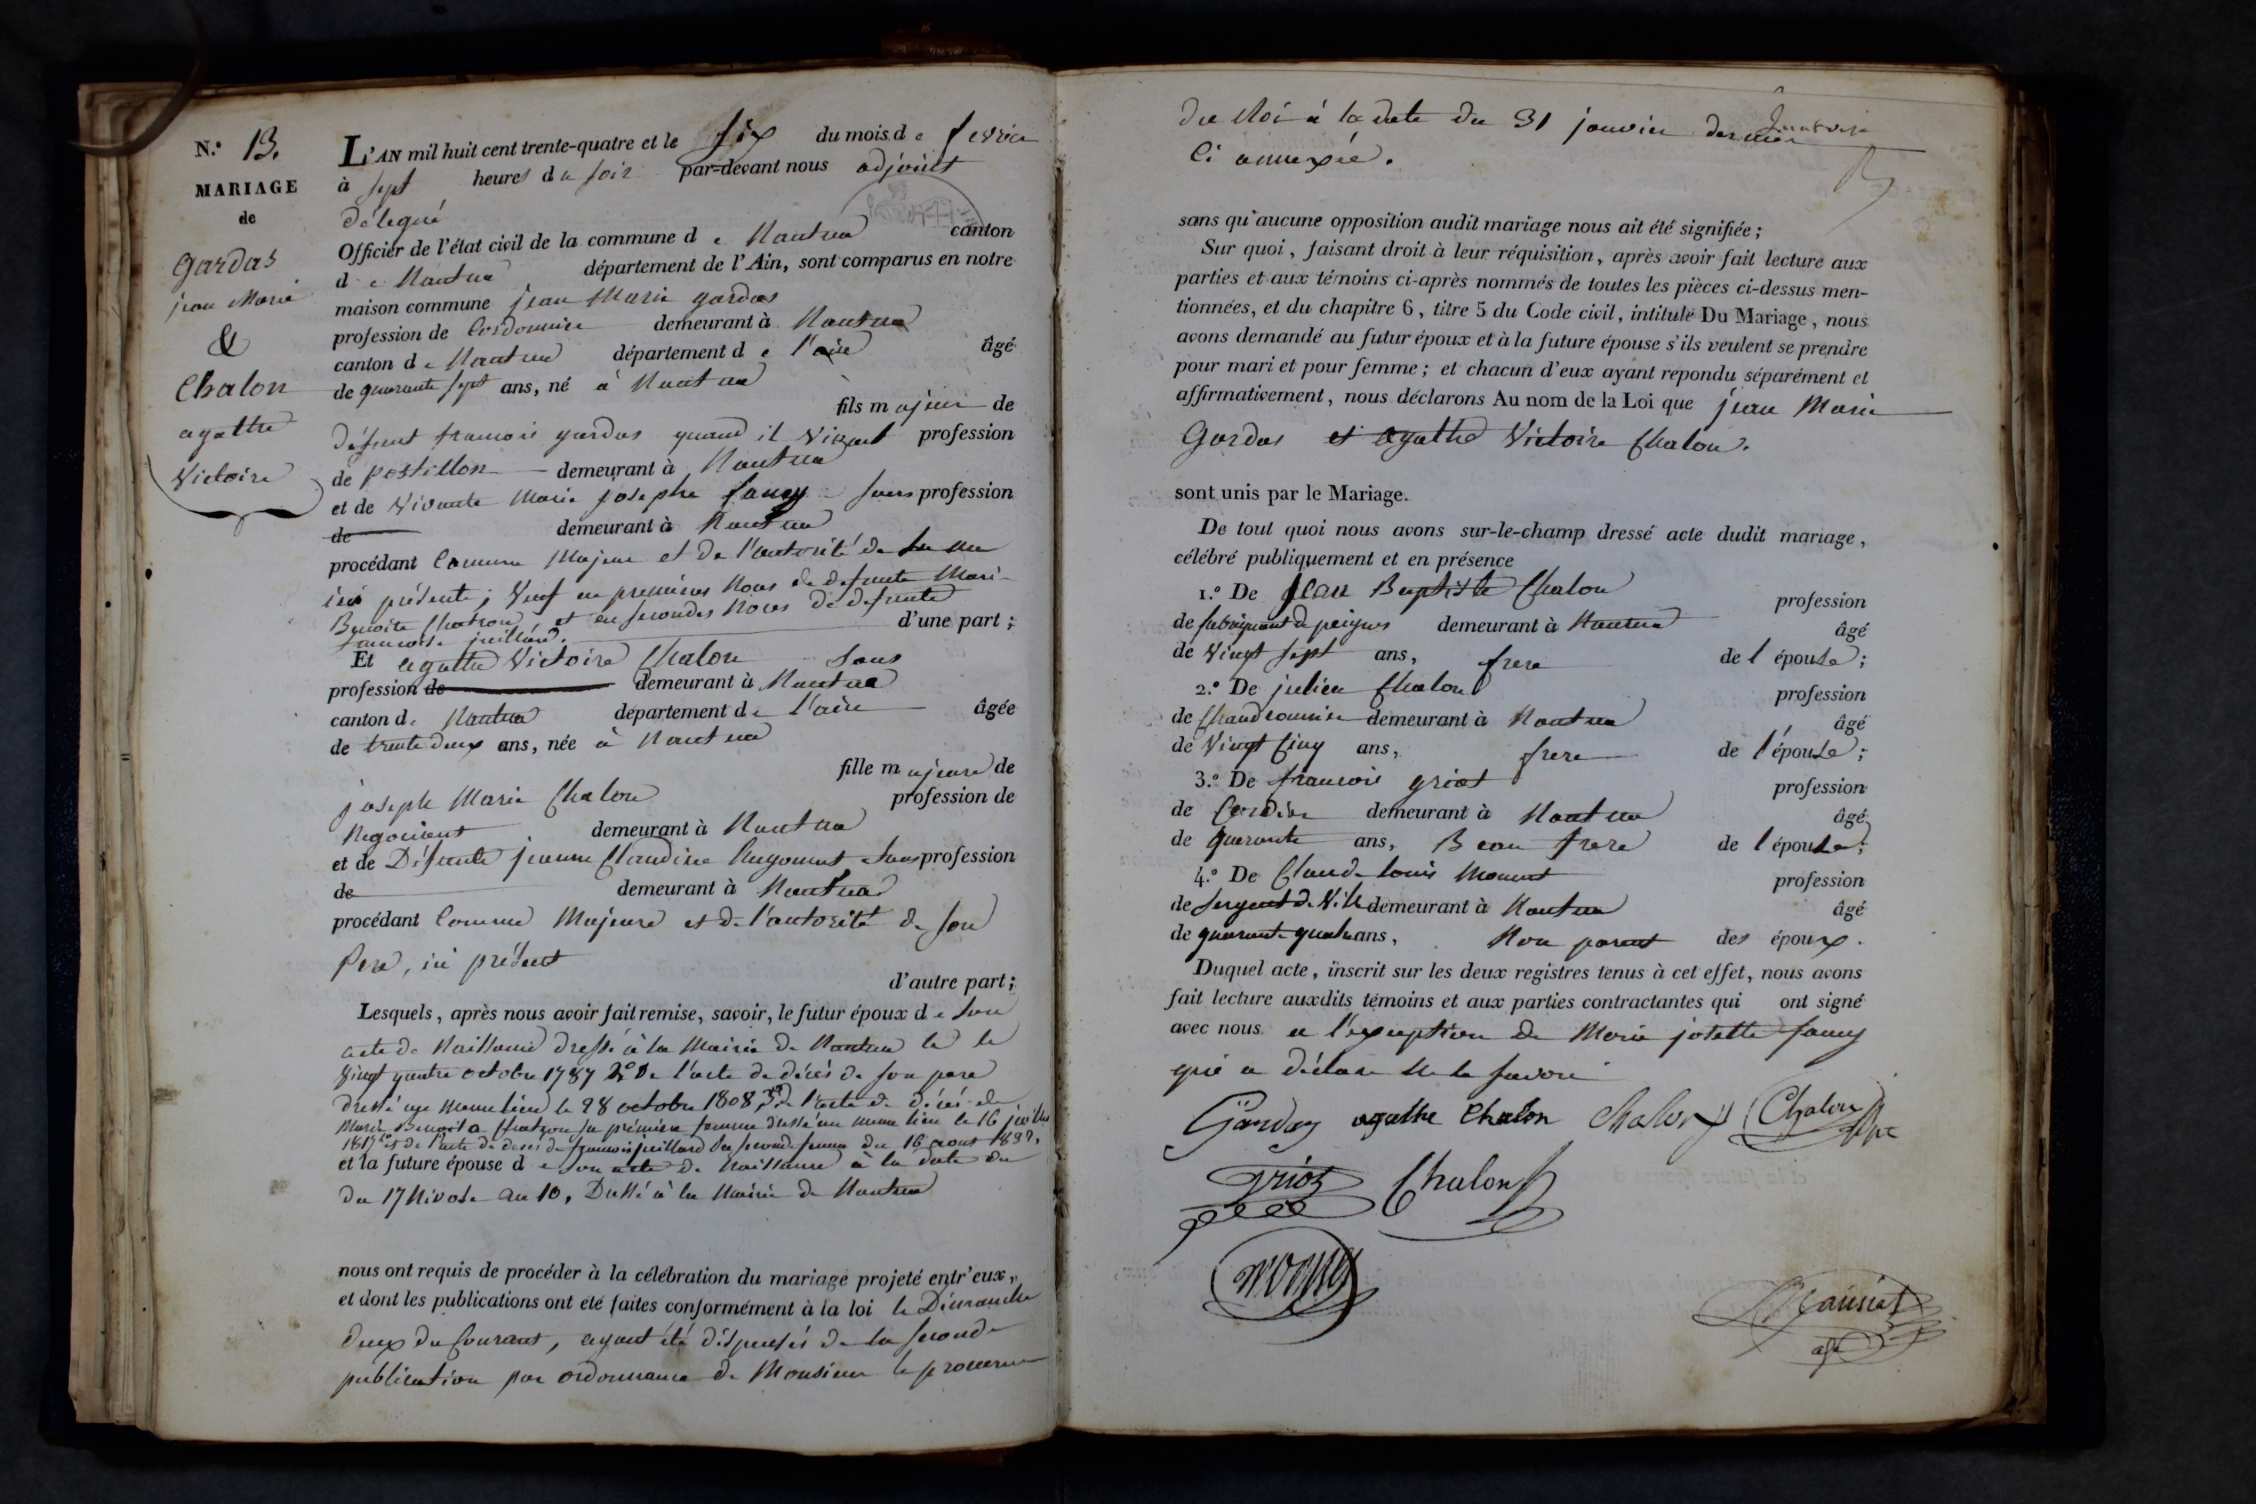 N.o 13.
MARIAGE
de
Gardas
jean Marie
&
Chalon
agathe
Victoire
L'AN mil huit cent trente-quatre et le six du mois de fevrier
à sept heures du soir par-devant nous adjoint
délegué
Officier de l'état civil de la commune de Nantua canton
de Nantua département de l'Ain, sont comparus en notre
maison commune jean Marie gardas
profession de Cordonnier demeurant à Nantua
canton de Nantua département de l'ain âgé
de quarante sept ans, né à Nantua
fils majeur de
défunt francois gardas quand il vivait profession
de postillon demeurant à Nantua
et de vivante Marie josephe famy sans profession
de demeurant à Nantua
procédant Comme Majeur et de l'autorité de sa me
ici présente; Veuf en premieres Noces de defunte Marie
Benoite Chatron et en secondes Noces de defunte
francoise juillard. d'une part;
Et agathe Victoire Chalon sans
profession de demeurant à Nantua
canton de Nantua département de l'ain âgée
de trente deux ans, née à Nantua
fille majeure de
joseph Marie Chalon profession de
Negociant demeurant à Nantua
et de Défunte jeanne Claudine sans profession
de demeurant à Nantua
procédant Comme Majeure et de l'autorité de son
Pere, ici présent
d'autre part;
Lesquels, après nous avoir fait remise, savoir, le futur époux de son
acte de Naissance dressé à la Mairie de Nantua le le
vingt quatre octobre 1787 2o De l'acte de décès de son pere
dressé au meme lieu le 28 octobre 1808, 3o de l'acte de décés de
Marie Benoite Chatron sa premiere femme dressé au meme lieu le 16 juillet
1817 4o et de l'acte de decés de francoise juillard sa seconde femme du 16 aout 1832,
et la future épouse de son acte de Naissance à la date du
du 17 Nivose an 10, Dressé à la Mairie de Nantua
nous ont requis de procéder à la célébration du mariage projeté entr'eux,
et dont les publications ont été faites conformément à la loi le Dimanche
deux du Courant, ayant été dispensés de la seconde
publication par ordonnance de Monsieur le procureur
du Roi à la date du 31 janvier dernier
Ci annexée.
sans qu'aucune opposition audit mariage nous ait été signifiée;
Sur quoi, faisant droit à leur réquisition, après avoir fait lecture aux
parties et aux témoins ci-après nommés de toutes les pièces ci-dessus men-
tionnées, et du chapitre 6, titre 5 du Code civil, intitulé Du Mariage, nous
avons demandé au futur époux et à la future épouse s'ils veulent se prendre
pour mari et pour femme; et chacun d'eux ayant repondu séparément et
affirmativement, nous déclarons Au nom de la Loi que jean Marie
Gardas et agathe Victoire Chalon.
sont unis par le Mariage.
De tout quoi nous avons sur-le-champ dressé acte dudit mariage,
célébré publiquement et en présence
1.o De Jean Baptiste Chalon profession
de fabriquant de peignes demeurant à Nantua âgé
de vingt sept ans, frere de l'épouse;
2.o De julien Chalon profession
de Chaudronnier demeurant à Nantua âgé
de Vingt Cinq ans, frere de l'épouse;
3.o De francois griot profession
de Cordier demeurant à Nantua âgé
de quarante ans, Beau frere de l'épouse;
4.o De Claude Louis profession
de sergent de Ville demeurant à Nantua âgé
de quarante quatre ans, Non parent des époux.
Duquel acte, inscrit sur les deux registres tenus à cet effet, nous avons
fait lecture auxdits témoins et aux parties contractantes qui ont signé
avec nous a l'exception de Marie josette famy
qui a déclaré ne le savoir
Garday agathe Chalon Chalon Chalon
griot Chalon